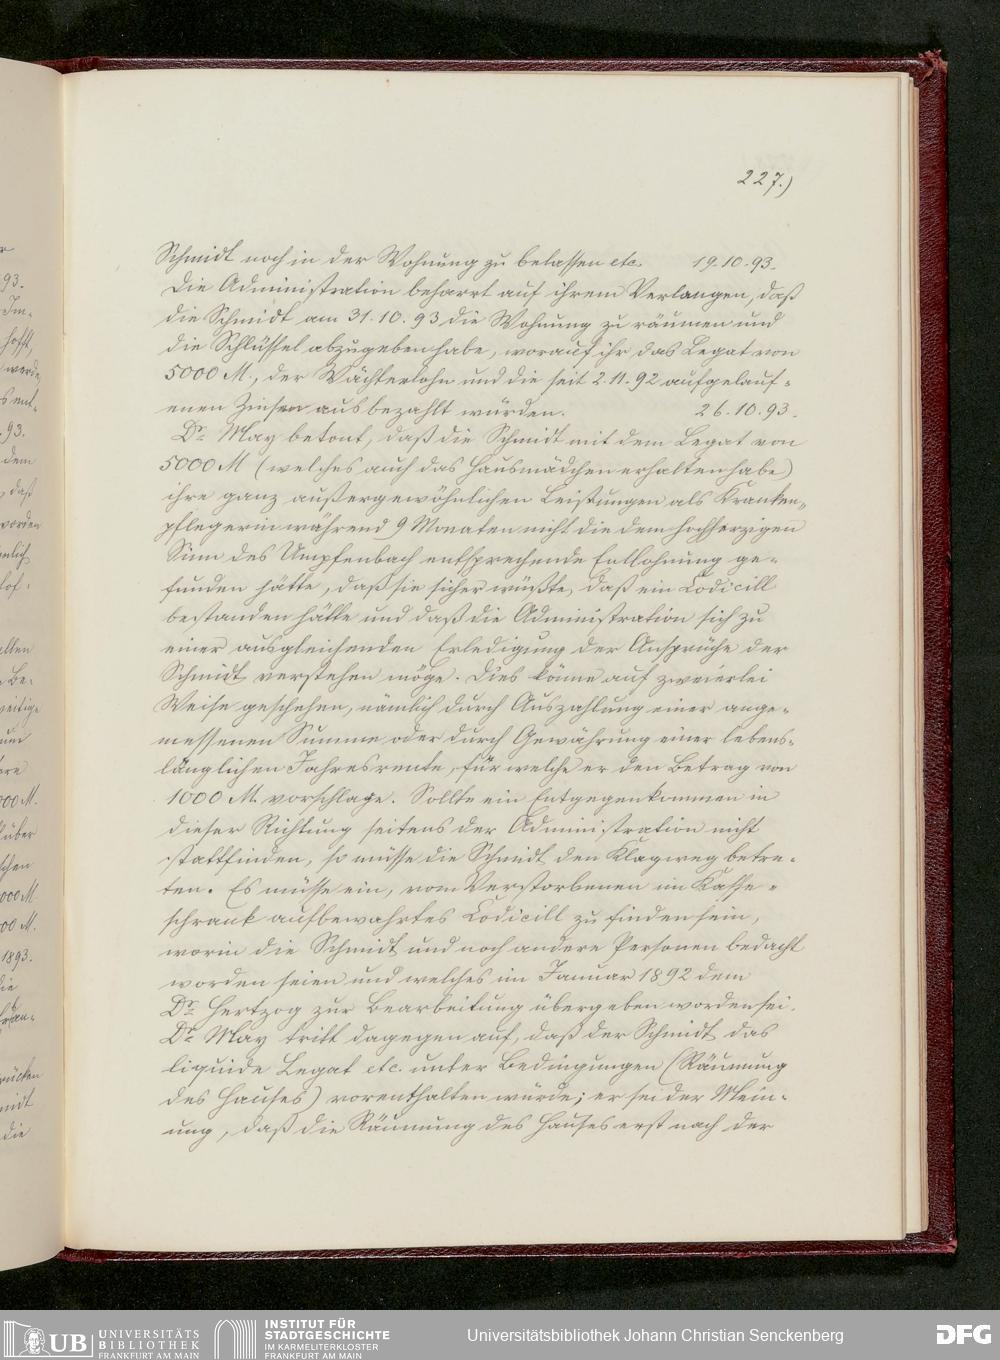 227.)
Schmidt noch in der Wohnung zu belassen etc. 19.10.93.
Die Administration beharrt auf ihrem Verlangen, daß
die Schmidt am 31.10.93 die Wohnung zu räumen und
die Schlüssel abzugeben habe, worauf ihr das Legat von
5000 M., der Wächterlohn und die seit 2.11.92 aufgelauf-
enen Zinsen ausbezahlt würden. 26.10.93.
Dr. May betont, daß die Schmidt mit dem Legat von
5000 M (welches auch das Hausmädchen erhalten habe)
ihre ganz außergewöhnlichen Leistungen als Kranken-
pflegerin während 9 Monaten nicht die dem hochherzigen
Sinn des Umpfenbach entsprechende Entlohnung ge-
funden hätte, daß sie sicher wüßte, daß ein Codicill
bestanden hätte und daß die Administration sich zu
einer ausgleichenden Erledigung der Ansprüche der
Schmidt verstehen möge. Dies könne auf zweierlei
Weise geschehen, nämlich durch Auszahlung einer ange-
messenen Summe oder durch Gewährung einer lebens-
länglichen Jahresrente, für welche er den Betrag von
1000 M. vorschlage. Sollte ein Entgegenkommen in
dieser Richtung seitens der Administration nicht
stattfinden, so müsse die Schmidt den Klagweg betre-
ten. Es müsse ein, vom Verstorbenen im Kasse-
schrank aufbewahrtes Codicill zu finden sein,
worin die Schmidt und noch andere Personen bedacht
worden seien und welches im Januar 1892 dem
Dr. Hertzog zur Bearbeitung übergeben worden sei.
Dr. May tritt dagegen auf, daß der Schmidt das
liquide Legat etc. unter Bedingungen (Räumung
des Hauses) vorenthalten würde; er sei der Mein-
ung, daß die Räumung des Hauses erst nach der
UB UNIVERSITÄTS
BIBLIOTHEK
FRANKFURT AM MAIN
INSTITUT FÜR
STADTGESCHICHTE
IM KARMELITERKLOSTER
FRANKFURT AM MAIN
Universitätsbibliothek Johann Christian Senckenberg
DFG